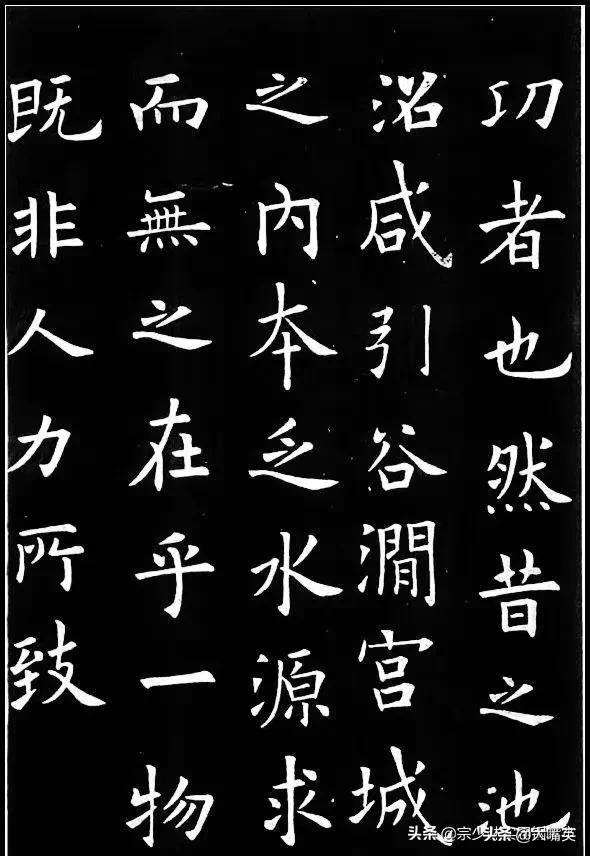 功者也然昔之池
沼咸引谷澗宮城
之內本乏水源求
而無之在乎一物
既非人力所致
头条 @宗少 头条 @大嘴英